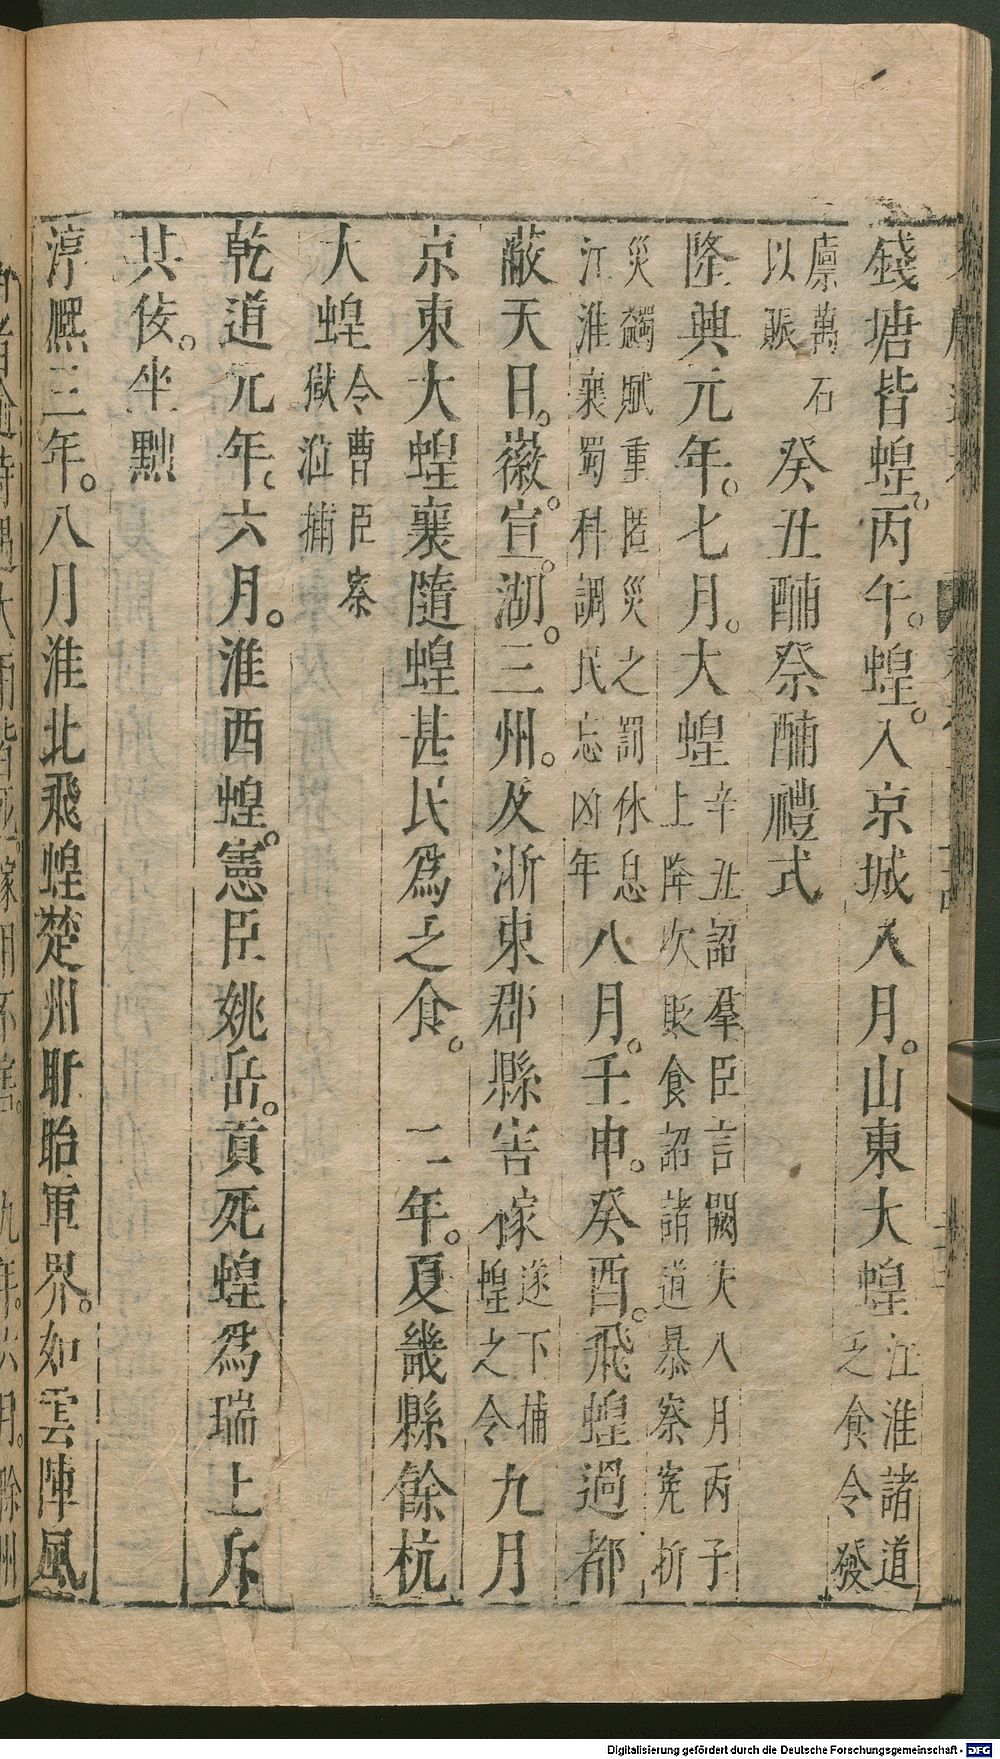 錢塘皆蝗。丙午。蝗。入京城八月。山東大蝗江淮諸道乏食令發
廩萬石以賑癸丑酺祭酺禮式
隆興元年。七月。大蝗辛丑詔羣臣言闕失八月丙子上降次貶食詔諸道暴察寃折
災蠲賦重匿災之罰休息江淮襄蜀科調民忘凶年八月。壬申。癸酉。飛蝗過都
蔽天日。徽。宣。湖。三州。及浙東郡縣害稼遂下捕蝗之令九月
京東大蝗襄隨蝗甚民為之食。二年。夏畿縣餘杭
大蝗令曹臣察獄涖捕
乾道元年。六月。淮西蝗。憲臣姚岳。貢死蝗為瑞上斥
其佞。坐黜
淳熈三年。八月淮北飛蝗楚州盱眙軍界。如雲陣風
Digitalisierung gefördert durch die Deutsche Forschungsgemeinschaft - DFG